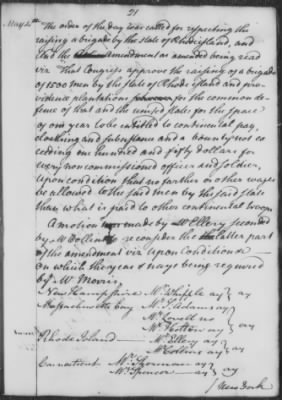 21
May 2th The order of the day was called for respecting the
raising a brigade by the State of Rhode island, and
and the amendment as amended being read
viz That Congress approve the raising of a brigade
of 1500 men by the state of Rhode island and pro-
vidence plantations for the common de-
fence of that and the United States for the space
of one year to be entitled to continental pay,
cloathing and subsistence and a bounty not ex
ceeding one hundred and fifty dollars for
every noncommissioned officer and soldier,
upon condition that no farther or other wages
be allowed to the said men by the said state
than what is paid to other continental troops
A motion was made by Mr Ellery seconded
by Mr Collins to reconsider the latter part
of the amendment viz Upon Condition &c
On which the yeas & nays being required
by Mr Morris
New Hampshire Mr Whipple ay } ay
Massachusetts bay Mr S Adams ay
Mr Lovell no
Mr Holten ay } ay
Rhode Island Mr Ellery ay
Mr Collins ay } ay
Connecticut Mr Sherman ay
Mr Spencer ay } ay
New York